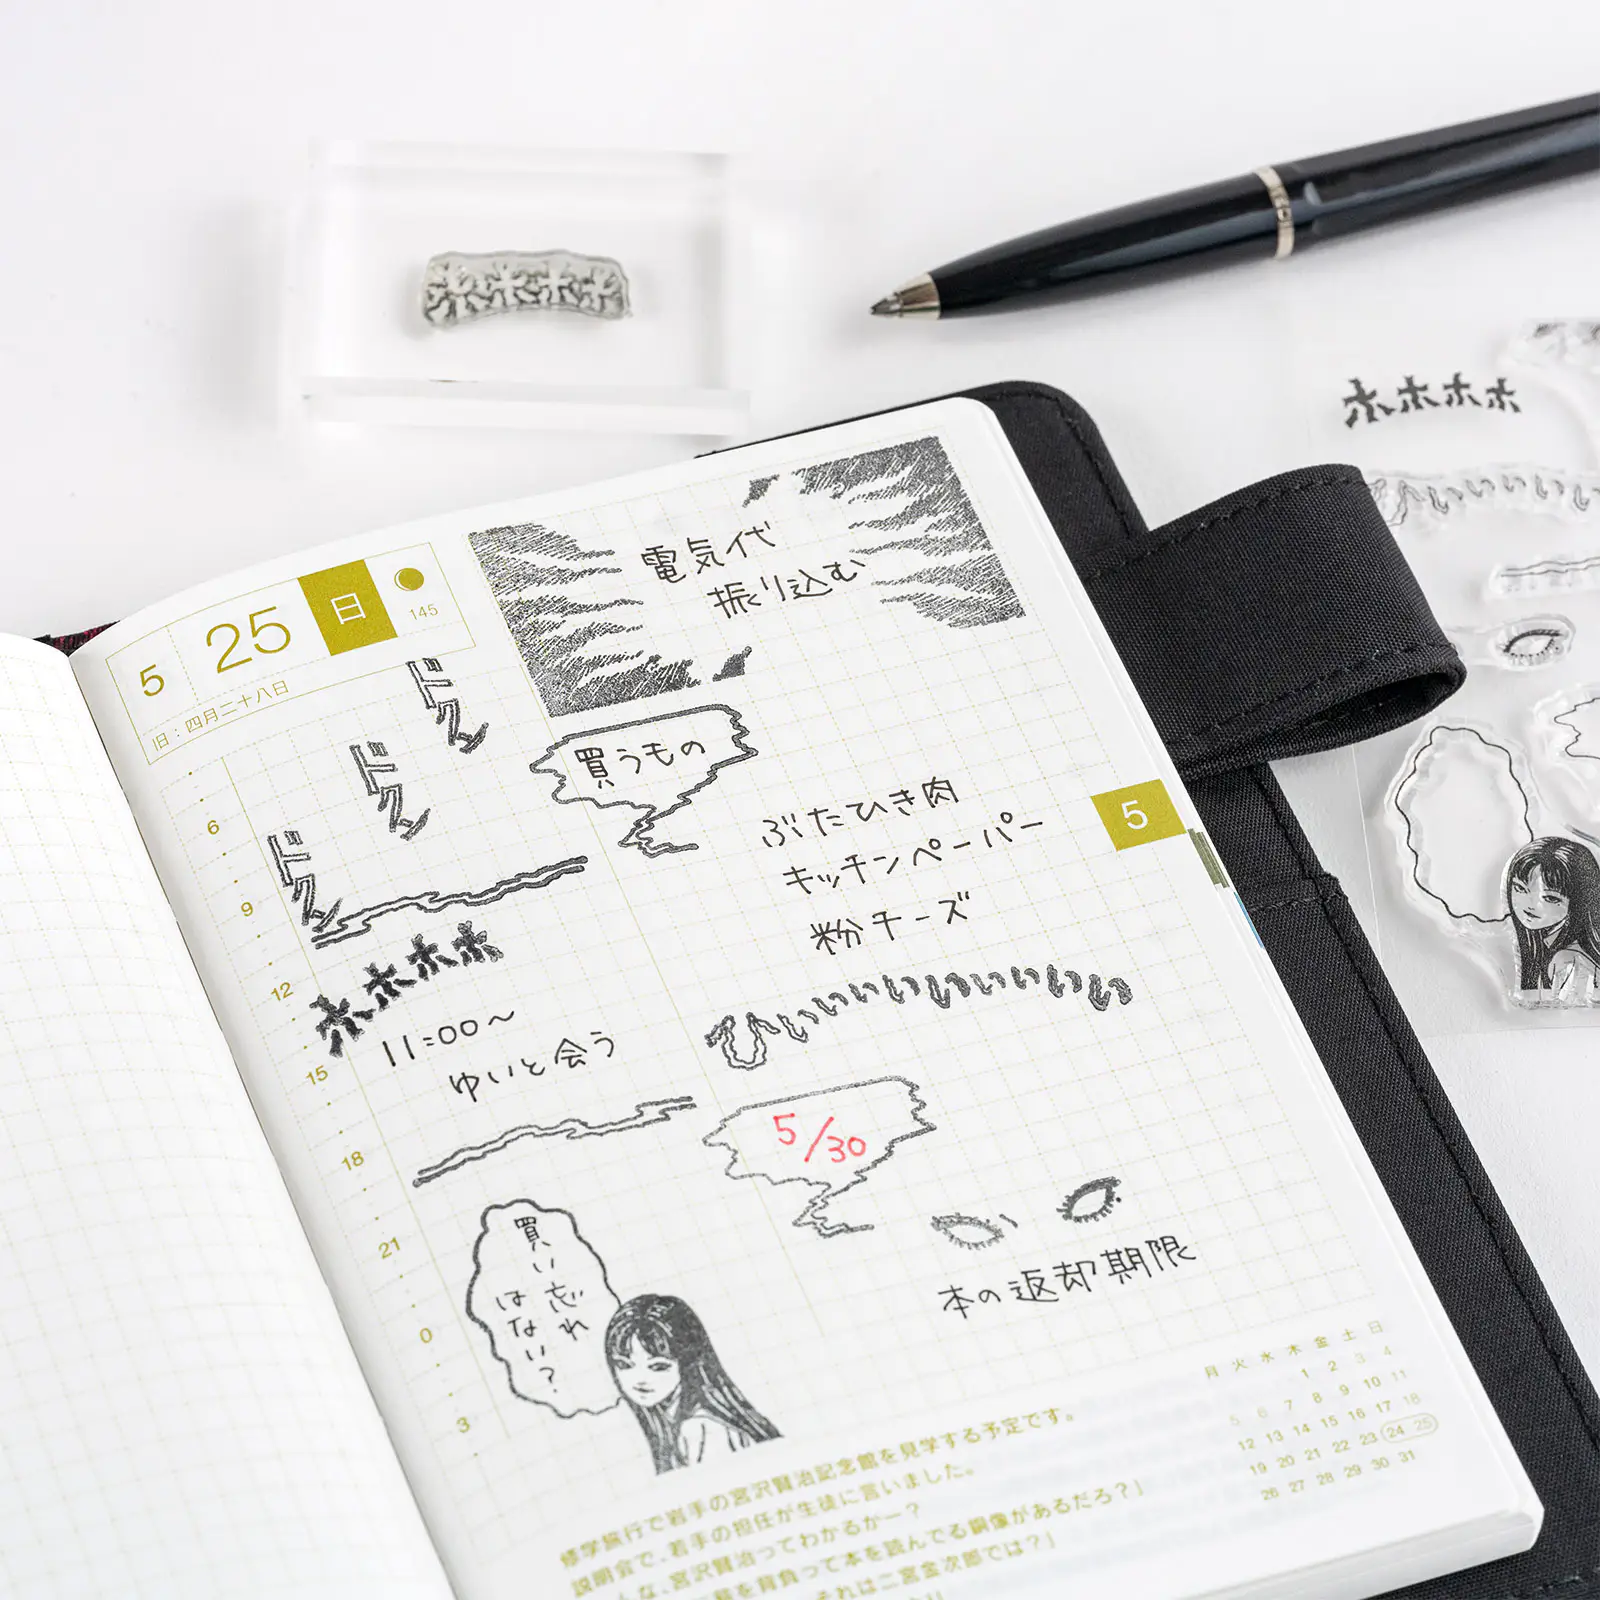 5 25 日
145
旧：四月二十八日
電気代
振り込む
ドクン
ドクン
ドクン
買うもの
ぶたひき肉
キッチンペーパー
粉チーズ
ホホホホ
11:00～
ゆいと会う
ひいいいいいいいいい
5/30
本の返却期限
買い忘れ
はない？
6
9
12
15
18
21
0
3
5
月 火 水 木 金 土 日
1 2 3 4
5 6 7 8 9 10 11
12 13 14 15 16 17 18
19 20 21 22 23 24 25
26 27 28 29 30 31
修学旅行で岩手の宮沢賢治記念館を見学する予定です。
説明会で、若手の担任が生徒に言いました。
んな、宮沢賢治ってわかるかー？
を背負って本を読んでる銅像があるだろ？」
それは二宮金次郎では？」
ホホホホ